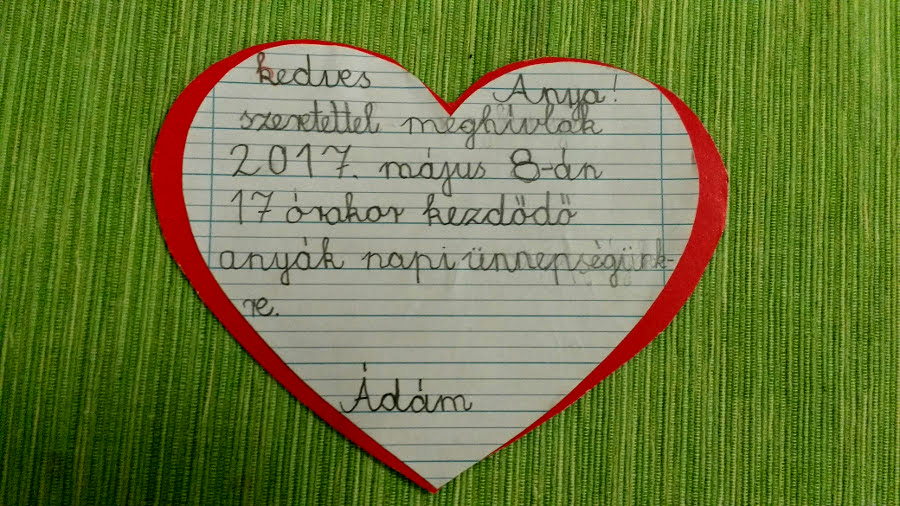 kedves Anya!
szeretettel meghívlak
2017. május 8-án
17 órakor kezdődő
anyák napi ünnepségünk-
re.
Ádám